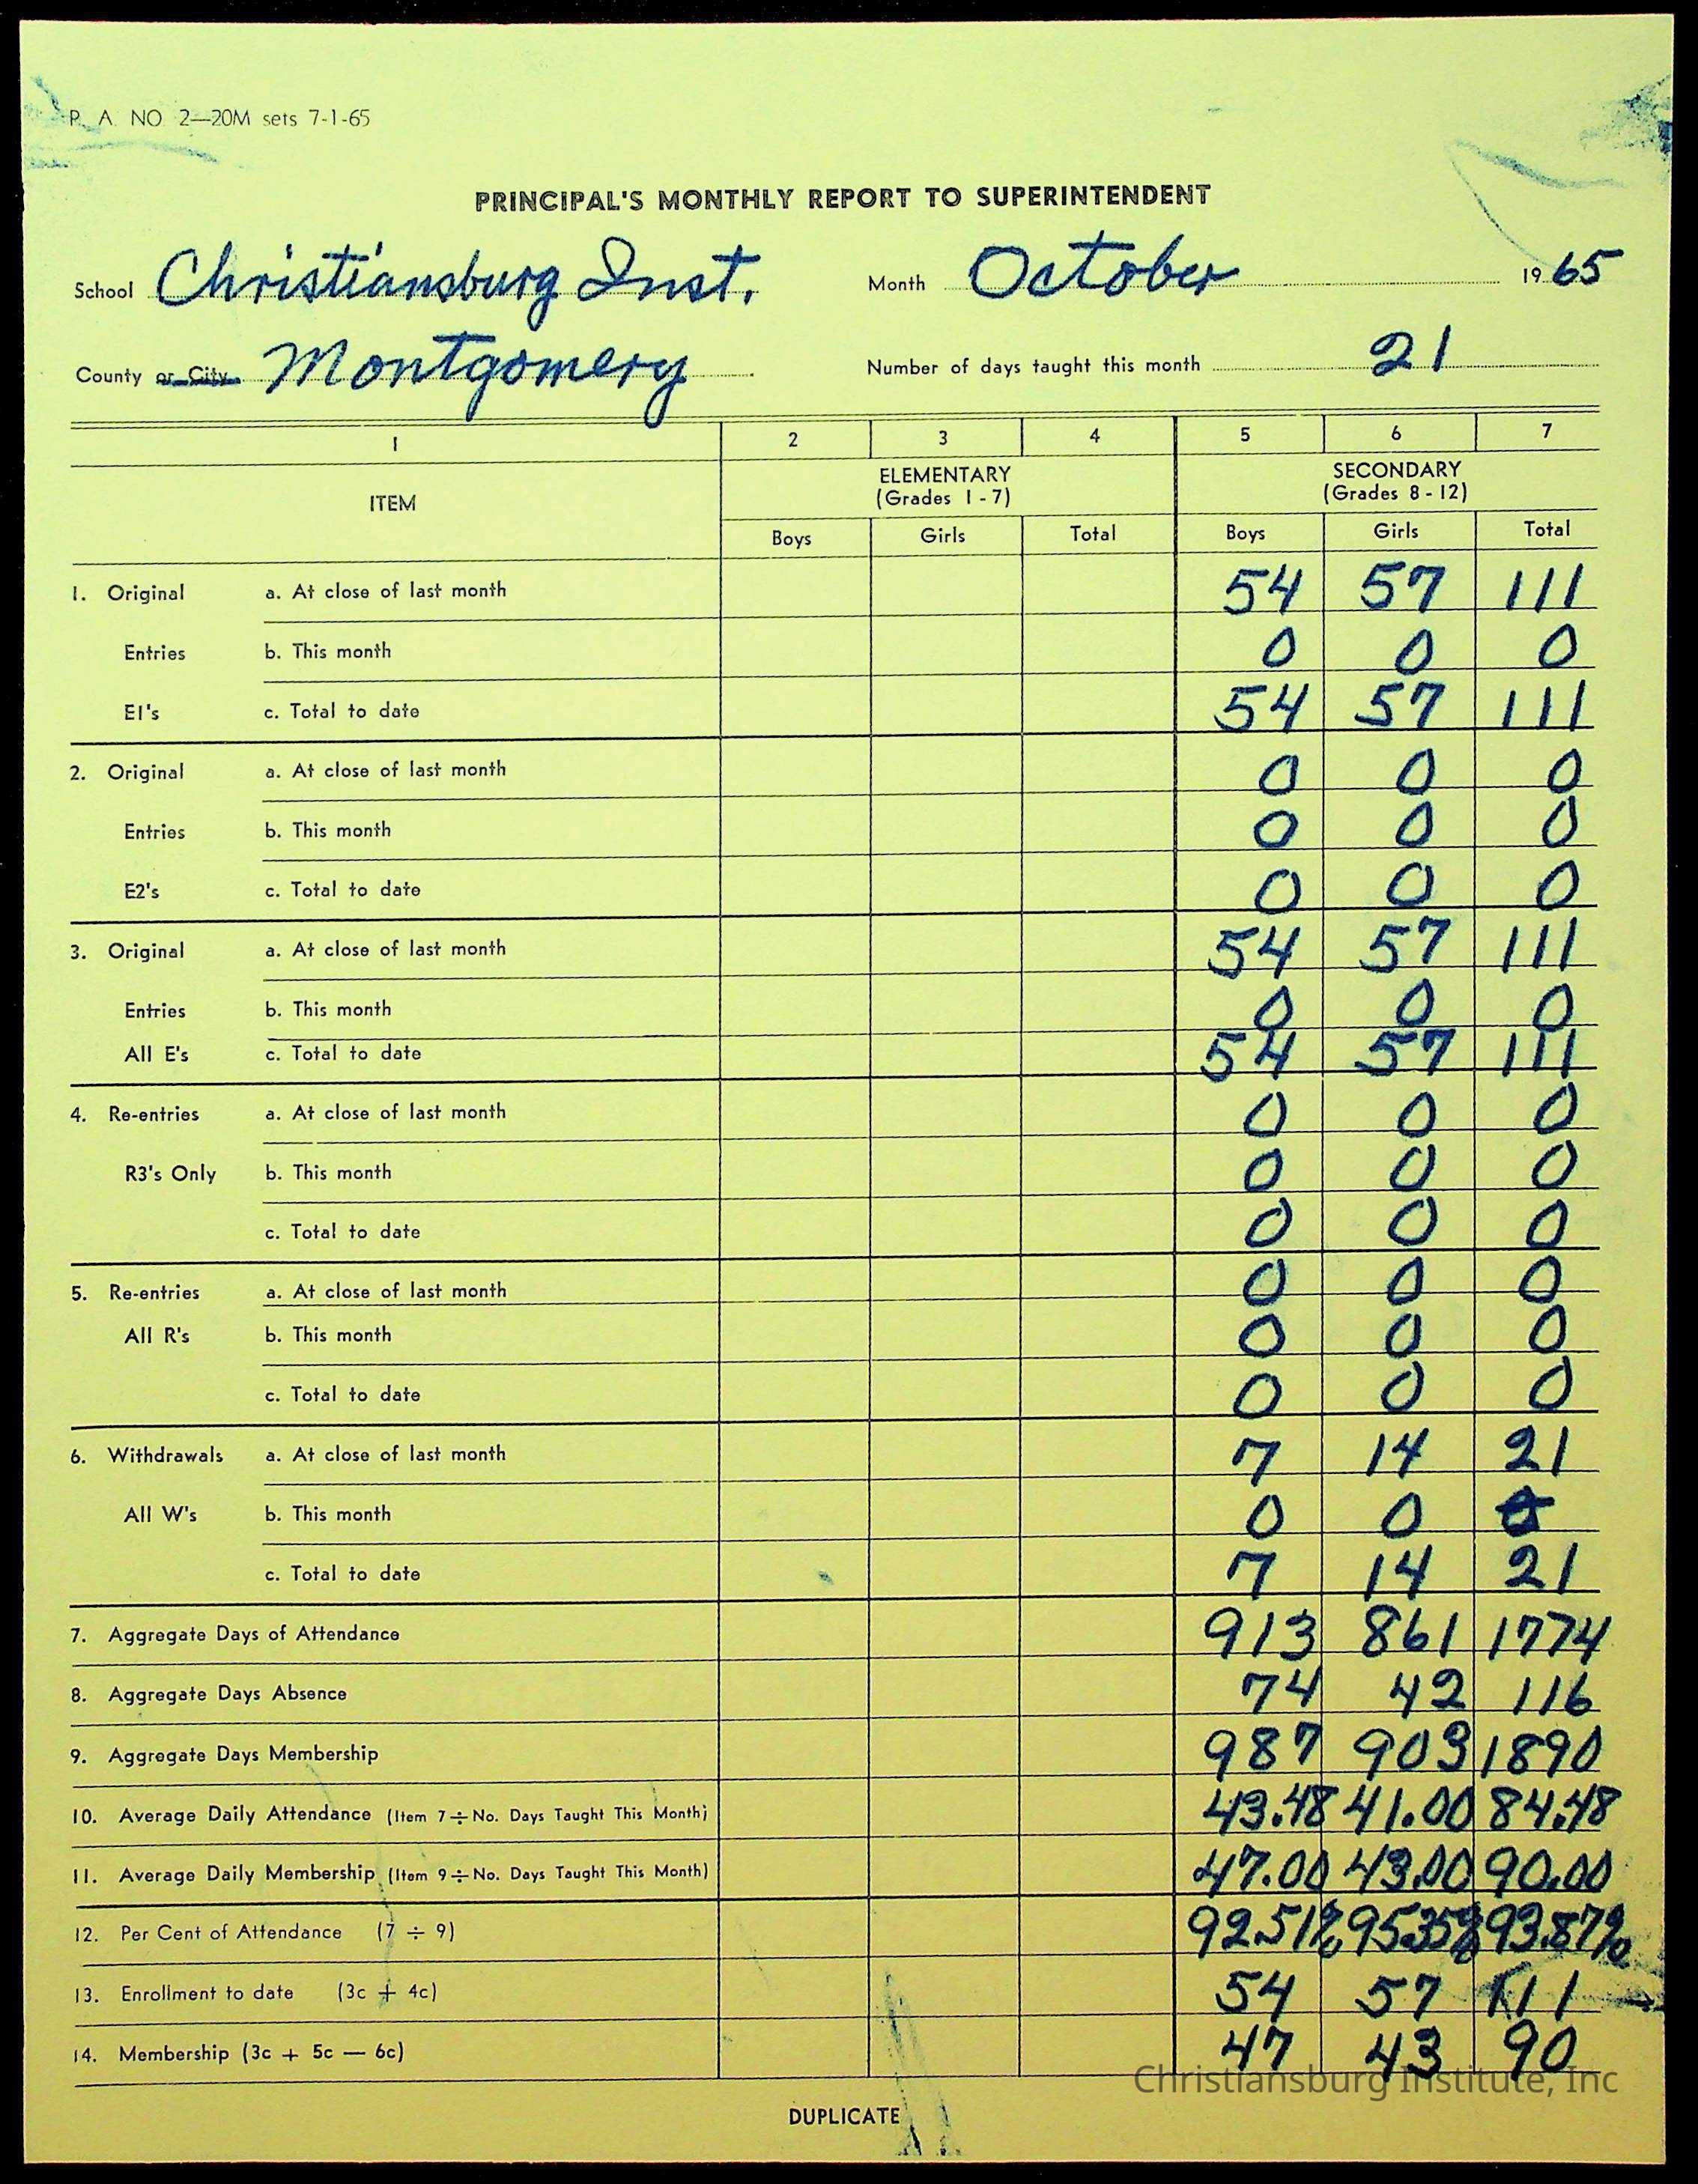 P. A. NO. 2—20M sets 7-1-65
PRINCIPAL'S MONTHLY REPORT TO SUPERINTENDENT
School Christiansburg Inst. Month October 19 65
County or City Montgomery Number of days taught this month 21
1 2 3 4 5 6 7
ITEM ELEMENTARY (Grades 1 - 7) SECONDARY (Grades 8 - 12)
Boys Girls Total Boys Girls Total
1. Original a. At close of last month 54 57 111
Entries b. This month 0 0 0
E1's c. Total to date 54 57 111
2. Original a. At close of last month 0 0 0
Entries b. This month 0 0 0
E2's c. Total to date 0 0 0
3. Original a. At close of last month 54 57 111
Entries b. This month 0 0 0
All E's c. Total to date 54 57 111
4. Re-entries a. At close of last month 0 0 0
R3's Only b. This month 0 0 0
c. Total to date 0 0 0
5. Re-entries a. At close of last month 0 0 0
All R's b. This month 0 0 0
c. Total to date 0 0 0
6. Withdrawals a. At close of last month 7 14 21
All W's b. This month 0 0 0
c. Total to date 7 14 21
7. Aggregate Days of Attendance 913 861 1774
8. Aggregate Days Absence 74 42 116
9. Aggregate Days Membership 987 903 1890
10. Average Daily Attendance (Item 7 ÷ No. Days Taught This Month) 43.48 41.00 84.48
11. Average Daily Membership (Item 9 ÷ No. Days Taught This Month) 47.00 43.00 90.00
12. Per Cent of Attendance (7 ÷ 9) 92.51% 95.35% 93.87%
13. Enrollment to date (3c + 4c) 54 57 111
14. Membership (3c + 5c — 6c) 47 43 90
Christiansburg Institute, Inc
DUPLICATE